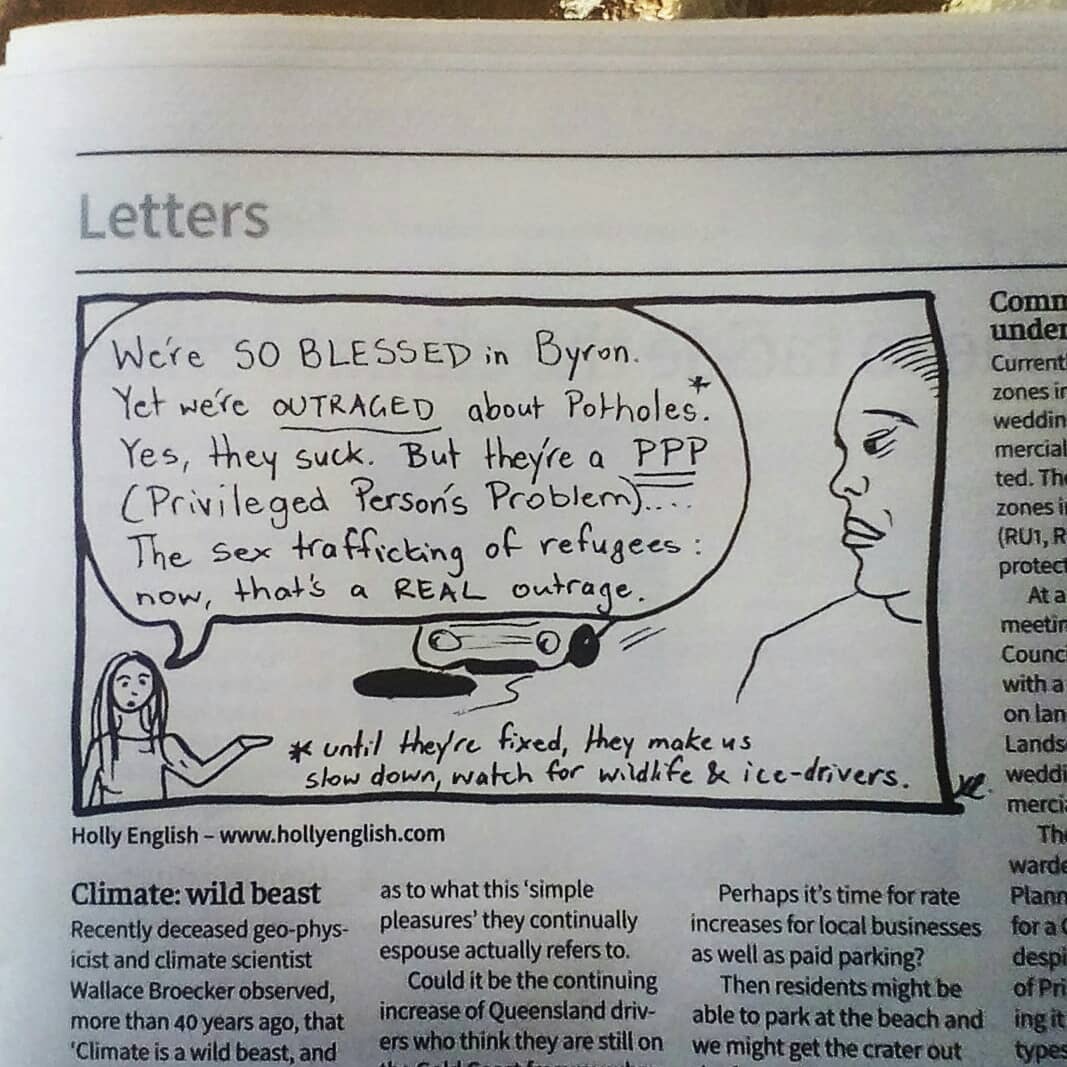 Letters
We're SO BLESSED in Byron.
Yet we're OUTRAGED about Potholes.*
Yes, they suck. But they're a PPP
(Privileged Person's Problem)....
The sex trafficking of refugees:
now, that's a REAL outrage.
* until they're fixed, they make us
slow down, watch for wildlife & ice-drivers.
Holly English – www.hollyenglish.com
Climate: wild beast
Recently deceased geo-phys-
icist and climate scientist
Wallace Broecker observed,
more than 40 years ago, that
'Climate is a wild beast, and
as to what this 'simple
pleasures' they continually
espouse actually refers to.
Could it be the continuing
increase of Queensland driv-
ers who think they are still on
Perhaps it's time for rate
increases for local businesses
as well as paid parking?
Then residents might be
able to park at the beach and
we might get the crater out
zones in
(RU1, R
At a
with a
on lan